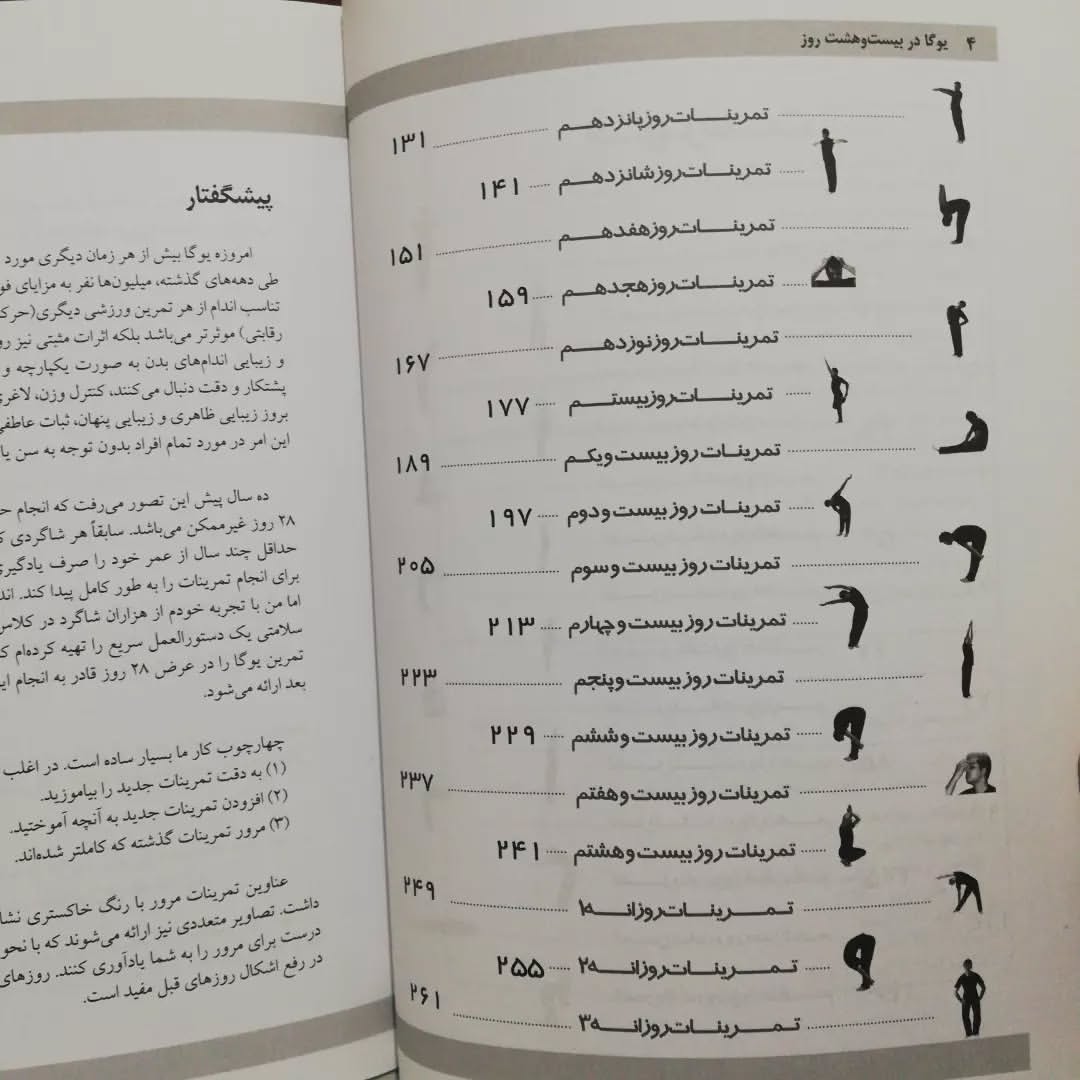 ۴ یوگا در بیست‌وهشت روز
تمرینات روز پانزدهم ۱۳۱
تمرینات روز شانزدهم ۱۴۱
تمرینات روز هفدهم ۱۵۱
تمرینات روز هجدهم ۱۵۹
تمرینات روز نوزدهم ۱۶۷
تمرینات روز بیستم ۱۷۷
تمرینات روز بیست و یکم ۱۸۹
تمرینات روز بیست و دوم ۱۹۷
تمرینات روز بیست و سوم ۲۰۵
تمرینات روز بیست و چهارم ۲۱۳
تمرینات روز بیست و پنجم ۲۲۳
تمرینات روز بیست و ششم ۲۲۹
تمرینات روز بیست و هفتم ۲۳۷
تمرینات روز بیست و هشتم ۲۴۱
تمرینات روزانه ۱ ۲۴۹
تمرینات روزانه ۲ ۲۵۵
تمرینات روزانه ۳ ۲۶۱
پیشگفتار
امروزه یوگا بیش از هر زمان دیگری مورد
طی دهه‌های گذشته، میلیون‌ها نفر به مزایای
تناسب اندام از هر تمرین ورزشی دیگری
رقابتی) موثرتر می‌باشد بلکه اثرات مثبتی نیز
و زیبایی اندام‌های بدن به صورت یکپارچه و
پشتکار و دقت دنبال می‌کنند، کنترل وزن،
بروز زیبایی ظاهری و زیبایی پنهان، ثبات
این امر در مورد تمام افراد بدون توجه به سن
ده سال پیش این تصور می‌رفت که انجام
۲۸ روز غیرممکن می‌باشد. سابقاً هر شاگردی
حداقل چند سال از عمر خود را صرف
برای انجام تمرینات را به طور کامل پیدا کند.
اما من با تجربه خودم از هزاران شاگرد در
سلامتی یک دستورالعمل سریع را تهیه کرده‌ام
تمرین یوگا را در عرض ۲۸ روز قادر به انجام
بعد ارائه می‌شود.
چهارچوب کار ما بسیار ساده است. در اغلب
(۱) به دقت تمرینات جدید را بیاموزید.
(۲) افزودن تمرینات جدید به آنچه آموختید.
(۳) مرور تمرینات گذشته که کاملتر شده‌اند.
عناوین تمرینات مرور با رنگ خاکستری
داشت. تصاویر متعددی نیز ارائه می‌شوند که با
درست برای مرور را به شما یادآوری کنند. روزهای
در رفع اشکال روزهای قبل مفید است.